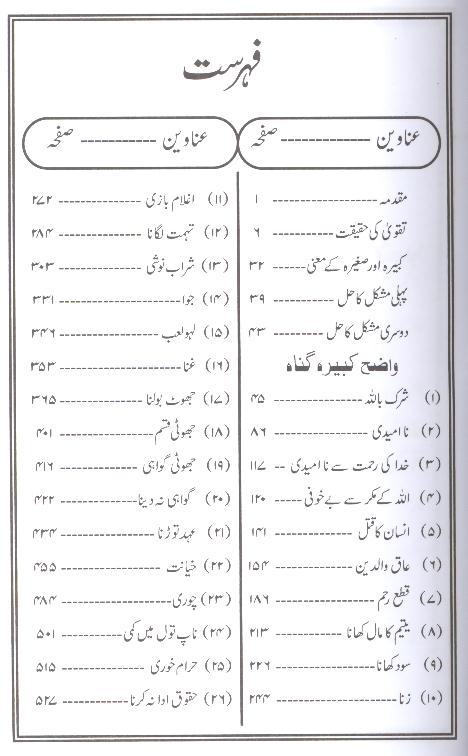 فہرست
عناوین ---------- صفحہ
مقدمہ ---------- ۱
تقویٰ کی حقیقت ---------- ۶
کبیرہ اور صغیرہ کے معنی ------ ۳۲
پہلی مشکل کا حل ---------- ۳۹
دوسری مشکل کا حل -------- ۴۳
واضح کبیرہ گناہ
(۱) شرک باللہ ---------- ۴۵
(۲) ناامیدی ---------- ۸۶
(۳) خدا کی رحمت سے ناامیدی -- ۱۱۷
(۴) اللہ کے مکر سے بے خوفی ----- ۱۲۰
(۵) انسان کا قتل ---------- ۱۴۱
(۶) عاق والدین ---------- ۱۵۴
(۷) قطع رحم ---------- ۱۸۶
(۸) یتیم کا مال کھانا ---------- ۲۱۳
(۹) سود کھانا ---------- ۲۲۶
(۱۰) زنا ---------- ۲۴۴
عناوین ---------- صفحہ
(۱۱) اغلام بازی ---------- ۲۷۲
(۱۲) تہمت لگانا ---------- ۲۸۴
(۱۳) شراب نوشی ---------- ۳۰۳
(۱۴) جوا ---------- ۳۳۱
(۱۵) لہو لعب ---------- ۳۴۶
(۱۶) غنا ---------- ۳۵۳
(۱۷) جھوٹ بولنا ---------- ۳۶۵
(۱۸) جھوٹی قسم ---------- ۴۰۱
(۱۹) جھوٹی گواہی ---------- ۴۱۶
(۲۰) گواہی نہ دینا ---------- ۴۲۲
(۲۱) عہد توڑنا ---------- ۴۳۴
(۲۲) خیانت ---------- ۴۵۵
(۲۳) چوری ---------- ۴۸۴
(۲۴) ناپ تول میں کمی ---------- ۵۰۱
(۲۵) حرام خوری ---------- ۵۱۵
(۲۶) حقوق ادا نہ کرنا ---------- ۵۲۷